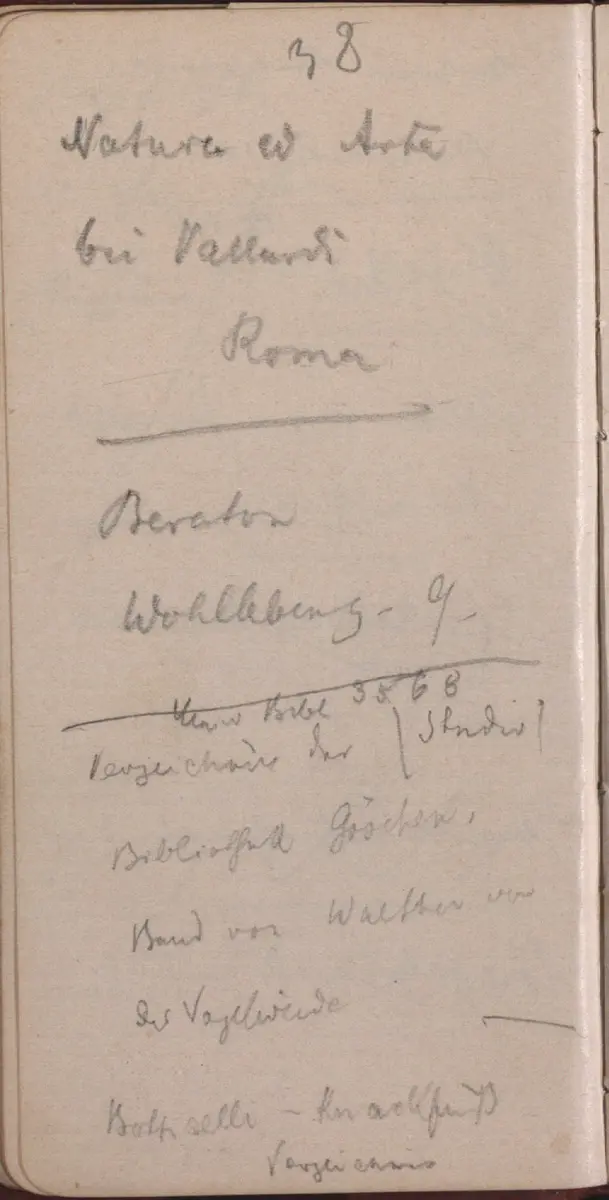 38
Natura ed Arte
bei Vallardi
Roma
Beraton
Wohlleben
Univ Bibl 3568
Verzeichnis der (Studio)
Bibliothek Göschen,
Band von Walther von
der Vogelweide
Botticelli – Knackfuß
Verzeichnis